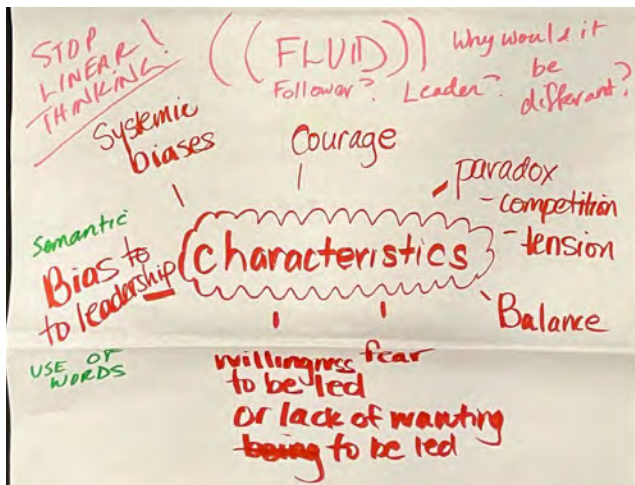 STOP
LINEAR!
THINKING!
((FLUID))
Follower? Leader?
Why would it
be
differant?
Systemic
biases
Courage
paradox
- competition
- tension
Semantic
Bias to
to leadership
characteristics
Balance
USE OF
WORDS
willingness fear
to be led
Or lack of wanting
being to be led